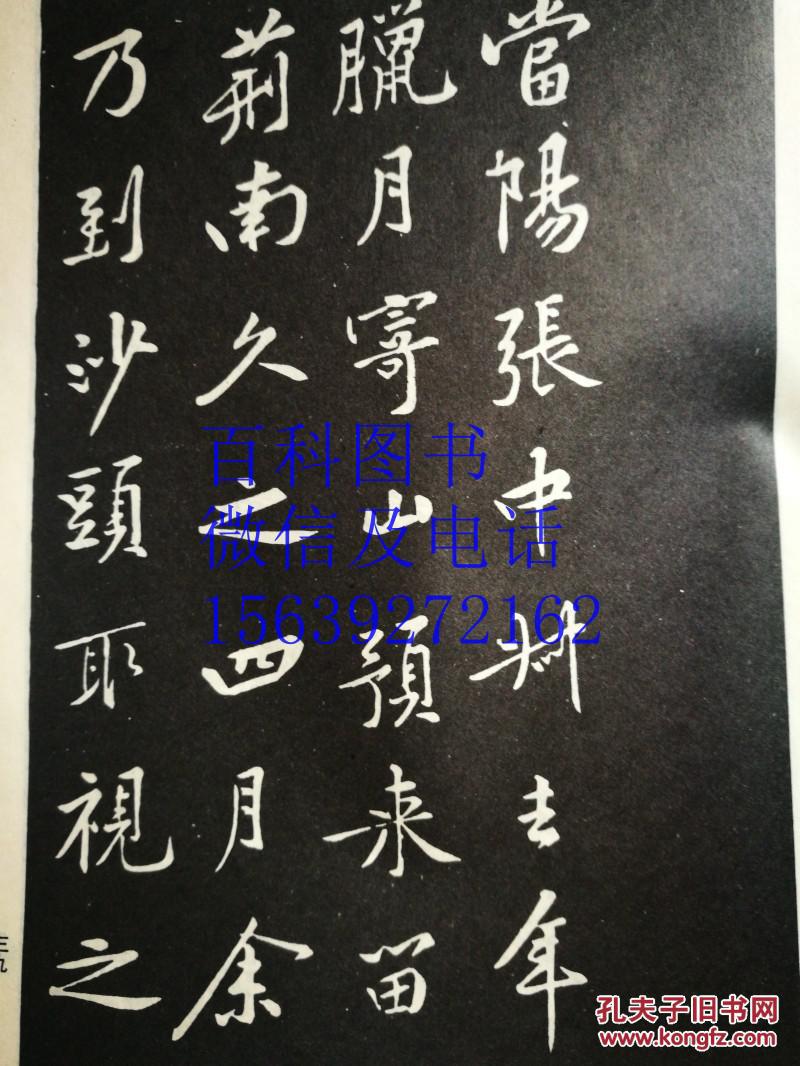 當陽張中叔去年
臘月寄山預来留
荆南久之四月余
乃到沙頭取視之
百科图书
微信及电话
15639272162
三九
孔夫子旧书网
www.kongfz.com